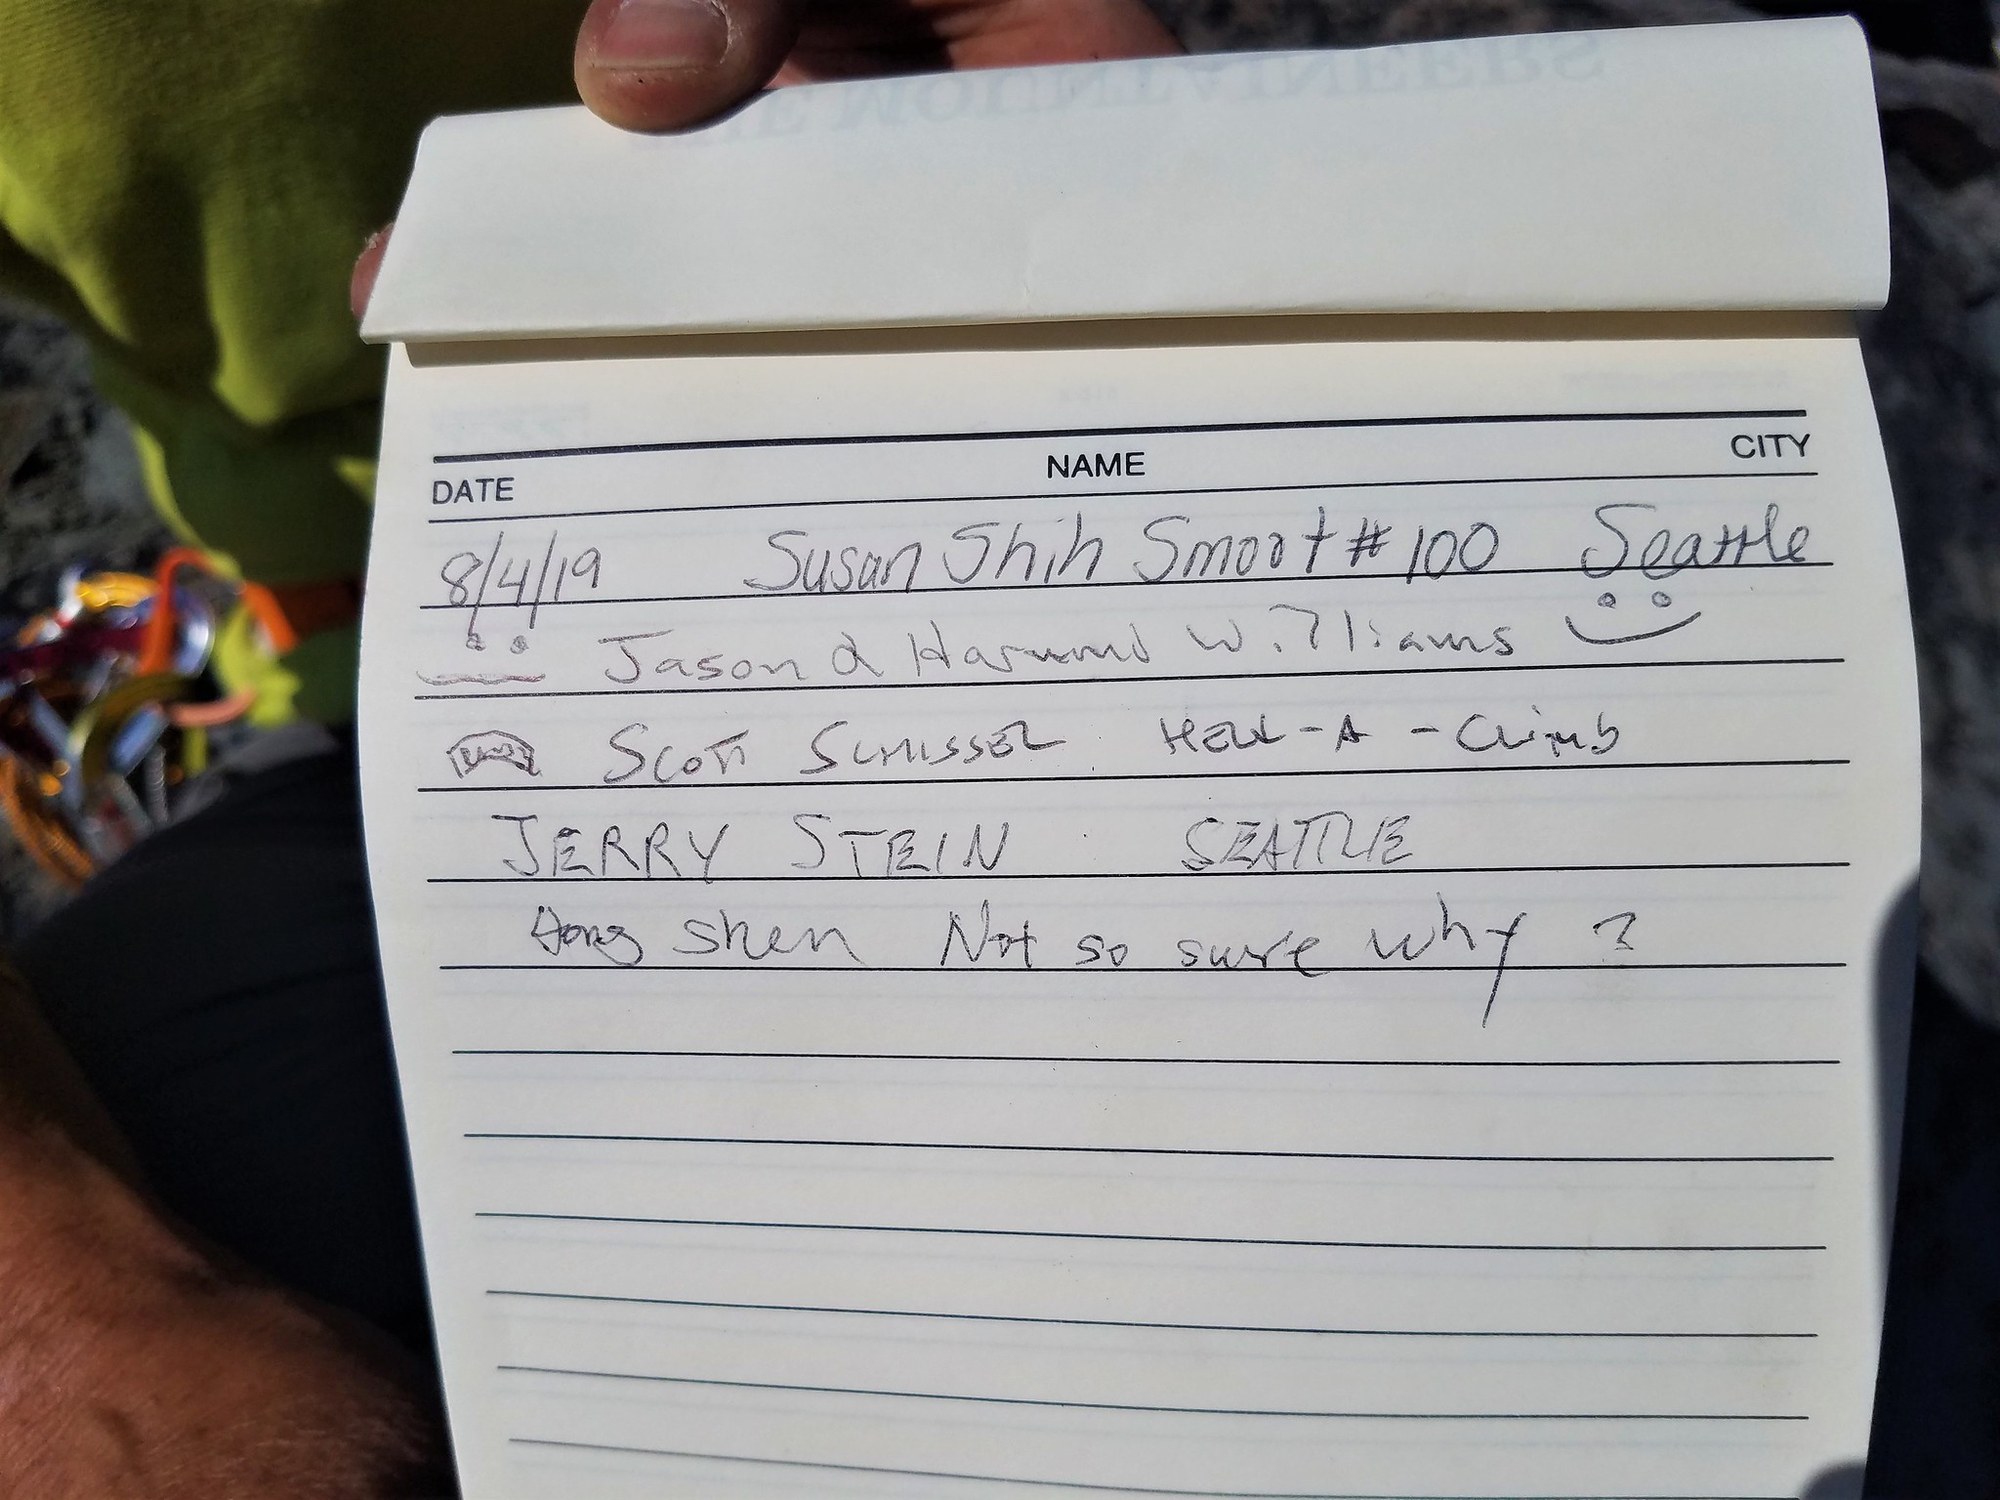 THE MOUNTAINEERS
DATE NAME CITY
8/4/19 Susan Shih Smoot #100 Seattle
Jason & Harumi Williams
SCOTT SCHISSEL HELL-A-Climb
JERRY STEIN SEATTLE
Dong Shen Not so sure why ?